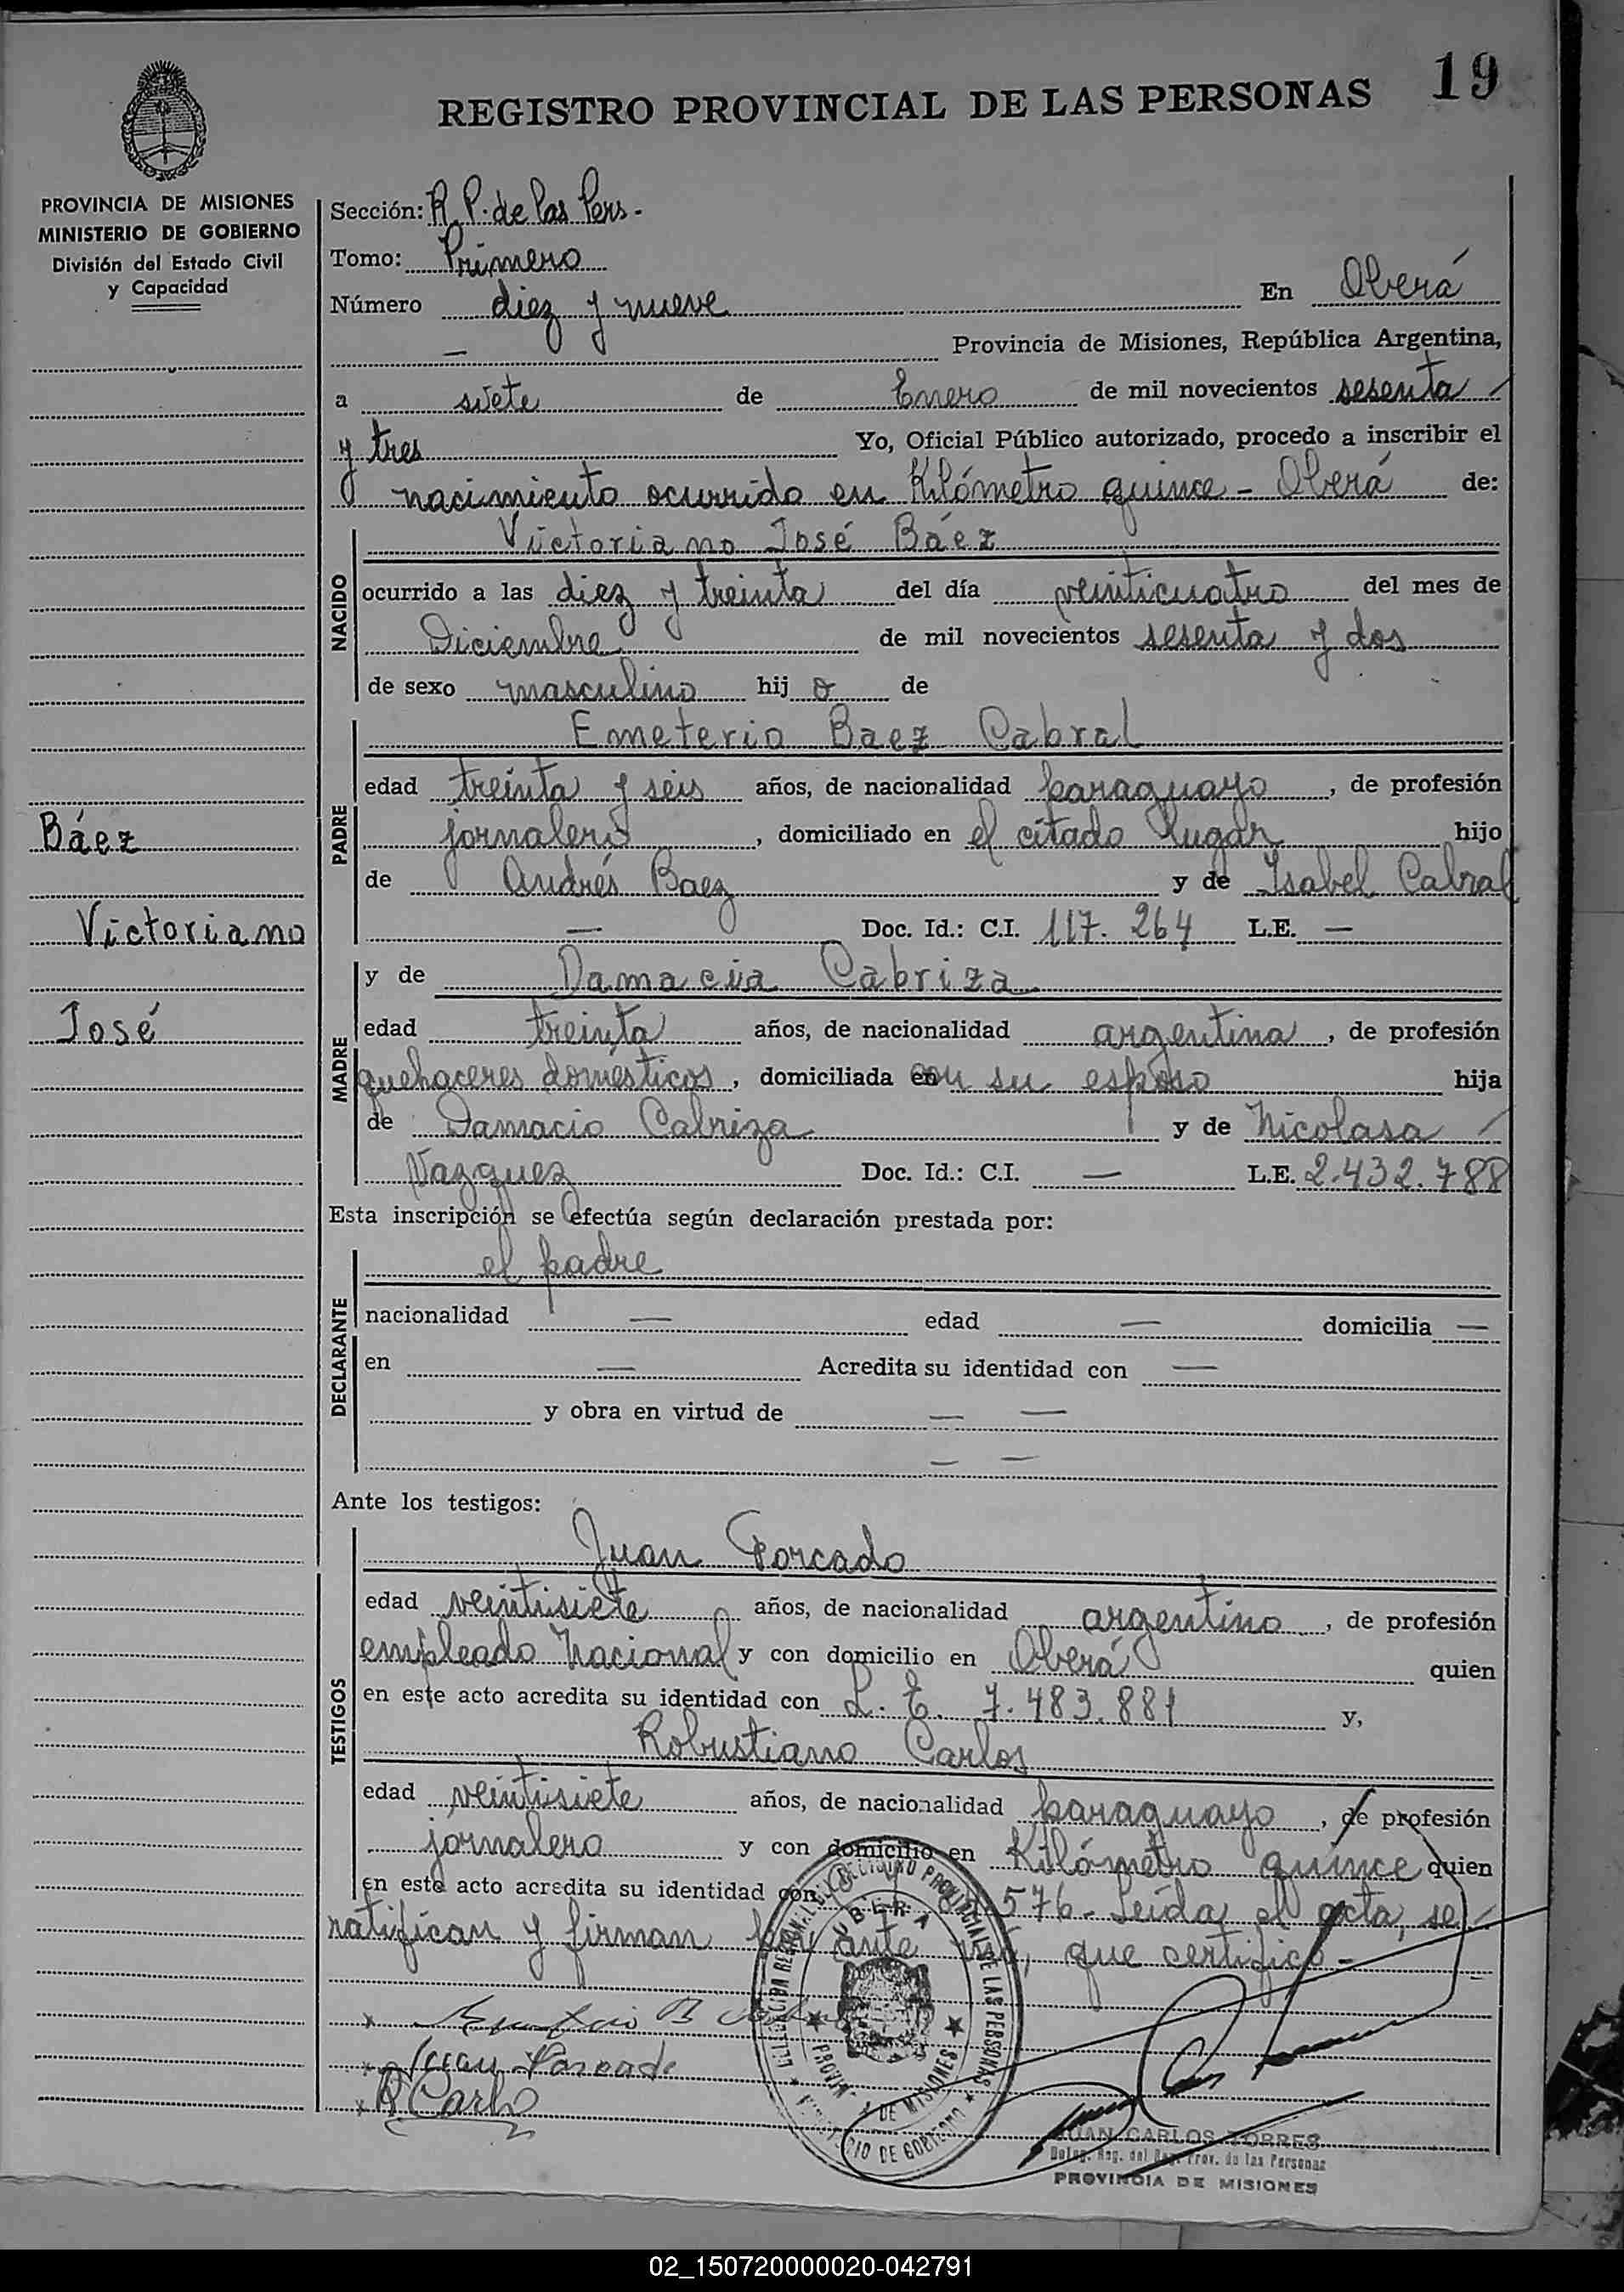 REGISTRO PROVINCIAL DE LAS PERSONAS 19
PROVINCIA DE MISIONES
MINISTERIO DE GOBIERNO
División del Estado Civil
y Capacidad
Báez
Victoriano
José
Sección: R. P. de las Pers.
Tomo: Primero
Número diez y nueve En Oberá
— Provincia de Misiones, República Argentina,
a siete de Enero de mil novecientos sesenta
y tres Yo, Oficial Público autorizado, procedo a inscribir el
nacimiento ocurrido en Kilómetro quince - Oberá de:
NACIDO
Victoriano José Báez
ocurrido a las diez y treinta del día veinticuatro del mes de
Diciembre de mil novecientos sesenta y dos
de sexo masculino hijo de
PADRE
Emeterio Baez Cabral
edad treinta y seis años, de nacionalidad paraguayo, de profesión
jornalero, domiciliado en el citado lugar hijo
de Andrés Baez y de Isabel Cabral
— Doc. Id.: C.I. 117.264 L.E. —
MADRE
y de Damacia Cabriza
edad treinta años, de nacionalidad argentina, de profesión
quehaceres domésticos, domiciliada con su esposo hija
de Damacio Cabriza y de Nicolasa
Vazquez Doc. Id.: C.I. — L.E. 2.432.788
Esta inscripción se efectúa según declaración prestada por:
DECLARANTE
el padre
nacionalidad — edad — domicilia —
en — Acredita su identidad con —
y obra en virtud de — —
— —
Ante los testigos:
TESTIGOS
Juan Forcado
edad veintisiete años, de nacionalidad argentino, de profesión
empleado Nacional y con domicilio en Oberá quien
en este acto acredita su identidad con L. E. 7.483.881 y,
Robustiano Carlos
edad veintisiete años, de nacionalidad paraguayo, de profesión
jornalero y con domicilio en Kilómetro quince quien
en este acto acredita su identidad con 576- Leída el acta, se
ratifican y firman por ante mí, que certifico -
Juan Forcado
R Carlo
OBERA
PROVINCIA DE MISIONES
MINISTERIO DE GOBIERNO
JUAN CARLOS TORRES
Deleg. Reg. del Reg. Prov. de las Personas
PROVINCIA DE MISIONES
02_150720000020-042791